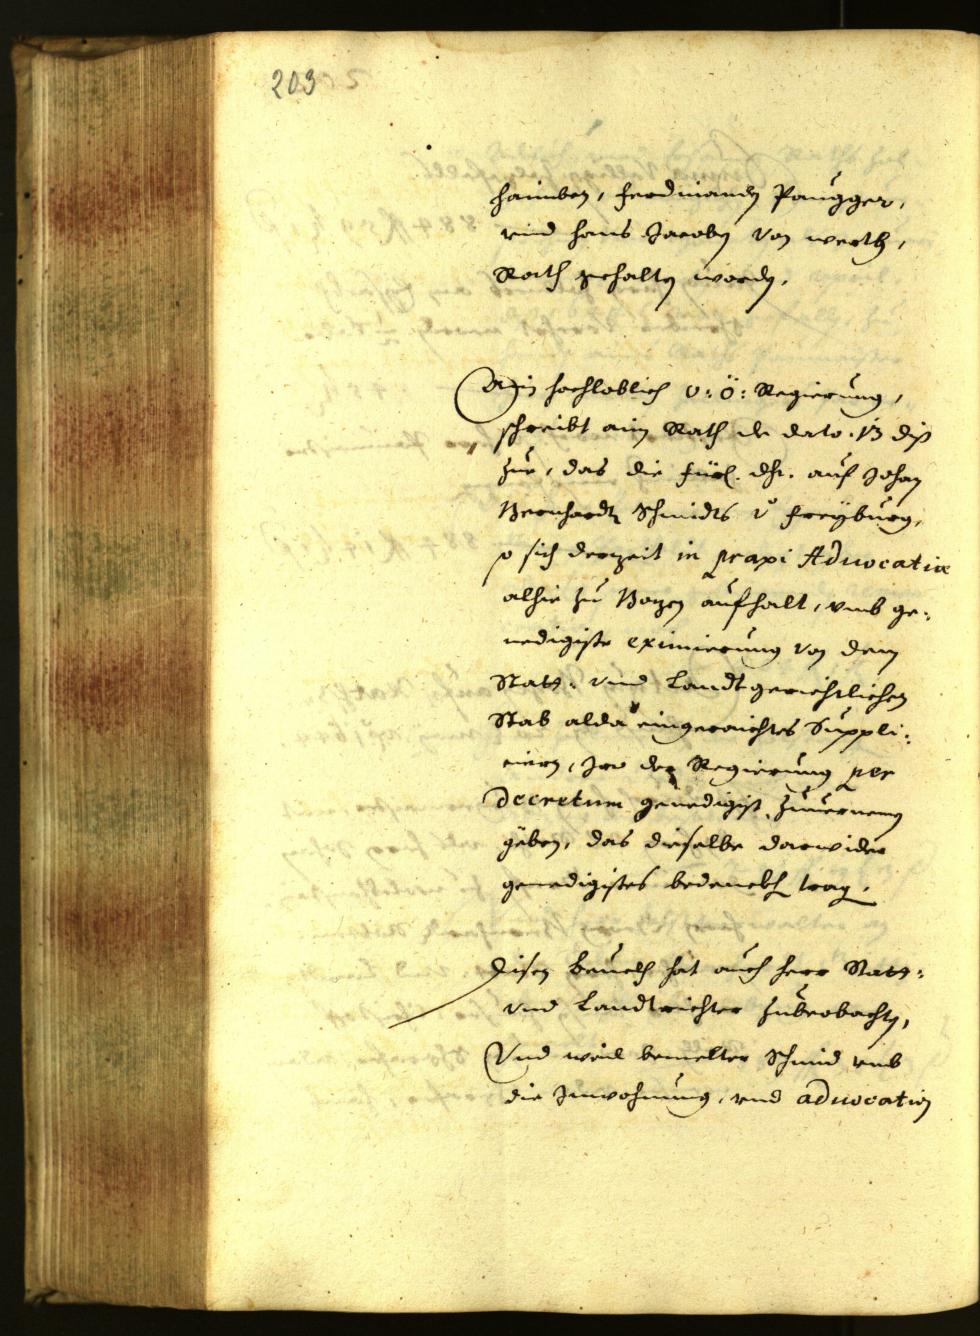 203
haimben, Ferdinanden Paugger,
vnd Hanns Jacoben von werth,
Rath gehalten worden.
Ain hochloblich o: ö: Regierung,
schreibt aim Rath de dato 13 diß
zue, das die Fürl. dhr. auf Johan
Bernhardten Schmidts v Freyburg,
so sich derzeit in praxi Aduocatiæ
alhie zu Bozen aufhalt, vmb ge-
nedigiste eximierung von dem
Statt- vnd Landtgerichtlichen
Stab alda eingeraichtes Suppli-
ciern, Ire der Regierung per
Decretum genedigist zuuernemen
geben, das dieselbe darwider
genedigistes bedenckh trag.
Disen beuelch hat auch herr Statt-
vnd Landtrichter zubeobachten,
Vnd weil bemelter Schmid vmb
die Inwohnung, vnd aduocation